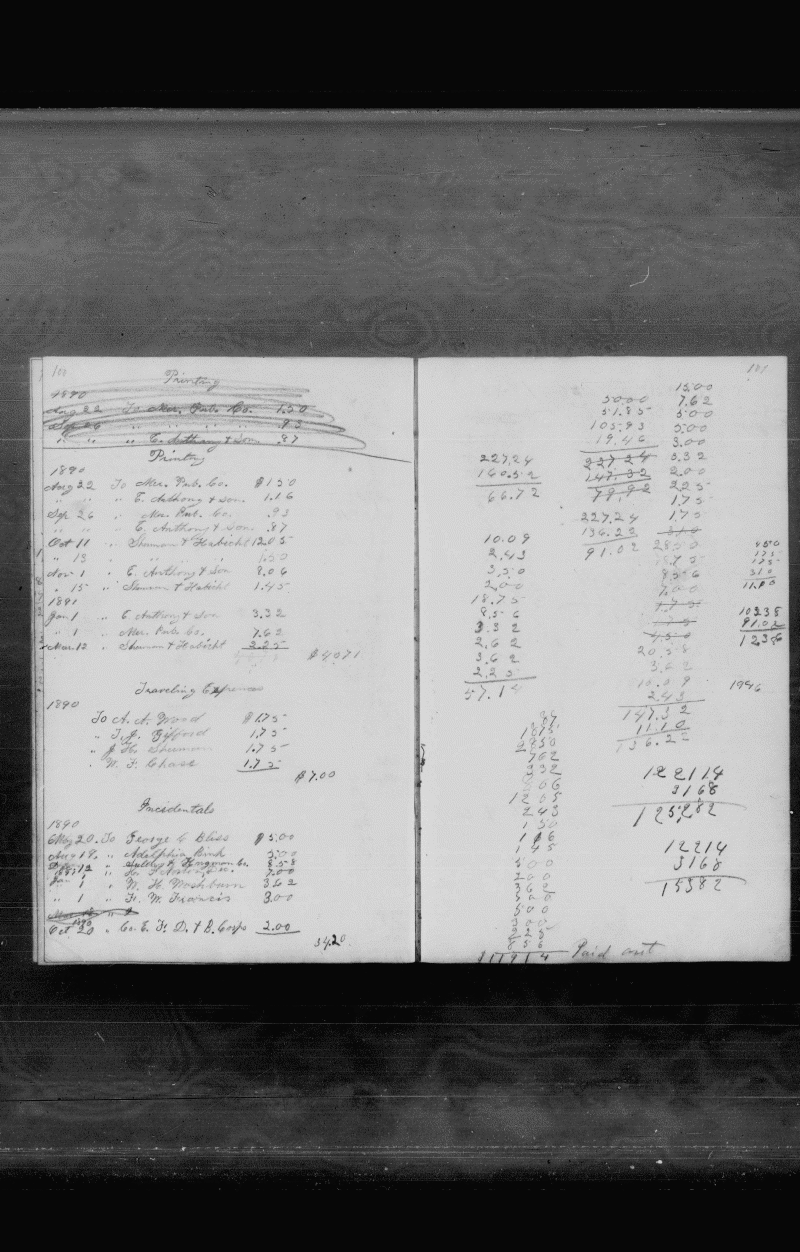 100
Printing
1890
Aug 22 To Mer. Pub. Co. 1.50
Sep 26 " " " " .93
" " " E. Anthony & Son .87
Printing
1890
Aug 22 To Mer. Pub. Co. $1.50
" " " E. Anthony & Son. 1.16
Sep 26 " Mer. Pub. Co. .93
" " " E. Anthony & Son .87
Oct 11 " Shuman & Habicht 12.05
" 13 " " " " 1.50
Nov 1 " E. Anthony & Son 8.06
" 15 " Shuman & Habicht 1.45
1891
Jan 1 " E Anthony & Son 3.32
" 1 " Mer. Pub. Co. 7.62
Mar. 12 " Shuman & Habicht 2.25
$40.71
Traveling Expenses
1890
To A. A. Wood $1.75
" T. J. Gifford 1.75
" J. H. Shuman 1.75
" W. F. Chase 1.75
$7.00
Incidentals
1890
May 20. To George C Bliss $5.00
Aug 19. " Adelphia Rink 5.00
" Hingman Co. 8.58
7.00
Jan 1 " W. H. Washburn 3.62
" 1 " F. W. Francis 3.00
1890
Oct 20 " Co. E. F. D. & B. Corps 2.00
34.20
101
15.00
7.62
5.00
5.00
3.00
3.32
2.00
2.25
1.75
1.75
28.50
18.75
8.56
7.00
1.75
1.75
4.50
20.58
3.62
10.09
2.43
147.32
11.10
136.22
50.00
51.85
105.93
19.46
227.24
147.32
79.92
227.24
136.22
91.02
227.24
160.52
66.72
10.09
2.43
3.50
2.00
18.75
8.56
3.32
2.62
3.62
2.25
57.14
8.50
1.75
1.75
3.10
11.10
102.35
91.02
1946
87
1075
2850
762
332
806
1205
243
150
116
145
500
200
362
500
500
300
225
856
11914 Paid out
122114
3168
125282
12214
3168
15382